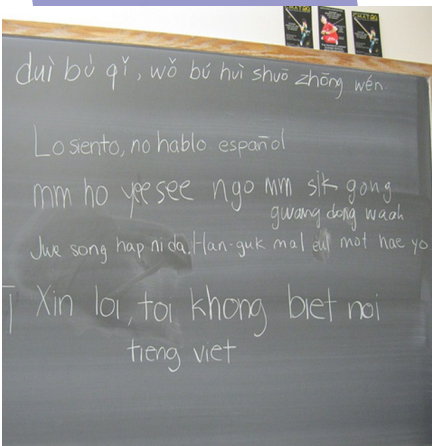 duì bù qǐ, wǒ bú huì shuō zhōng wén
Lo siento, no hablo español
mm ho yee see ngo mm sik gong
gwang dong waah
Jwe song hap ni da. Han-guk mal eul mot hae yo
Xin loi, toi khong biet noi
tieng viet